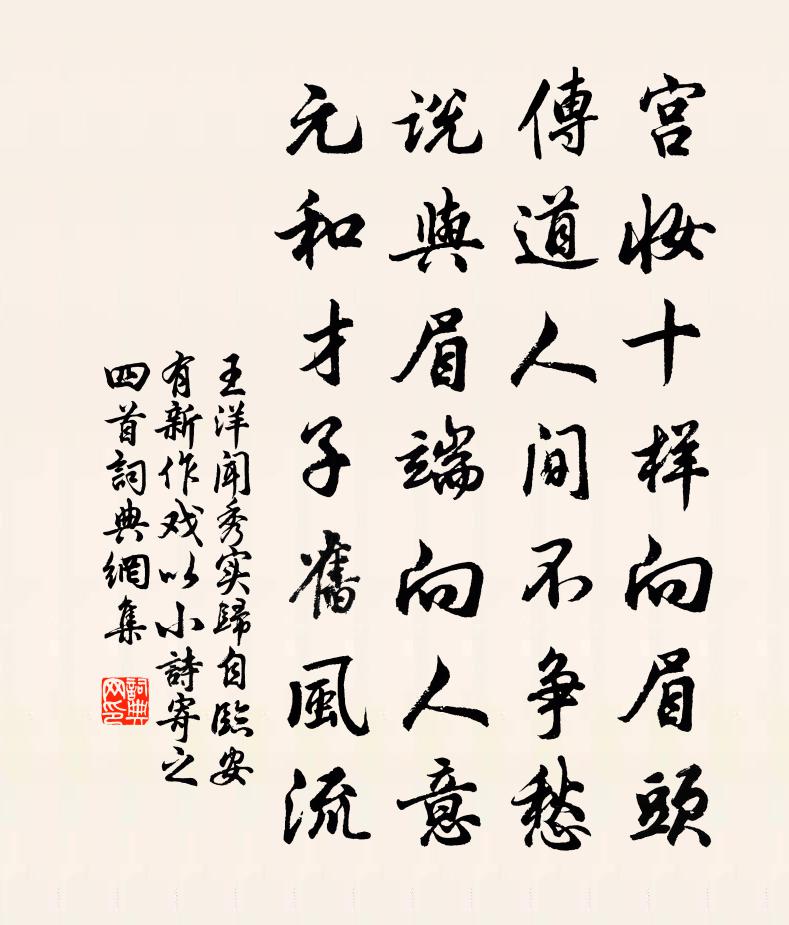 宫妝十样向眉頭
傳道人间不争愁
説與眉端向人意
元和才子舊風流
王洋闻秀实歸自臨安
有新作戏以小詩寄之
四首詞典網集
詞典
网印